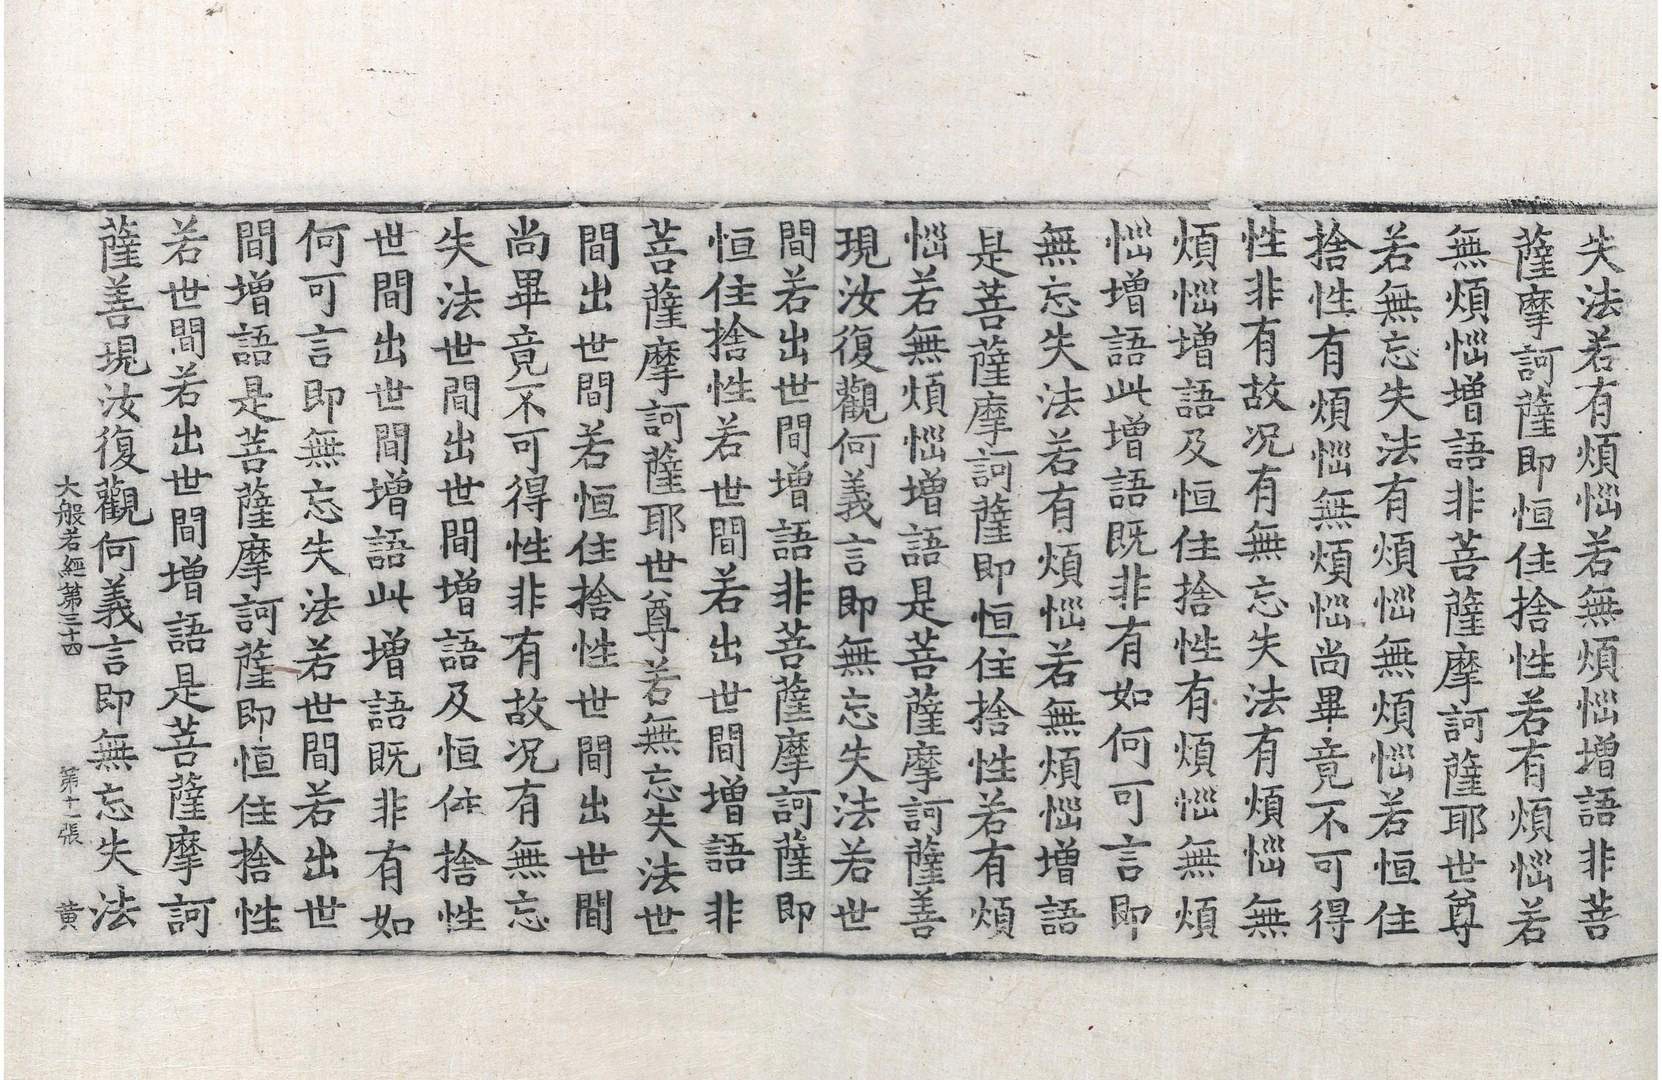 失法若有煩惱若無煩惱增語非菩
薩摩訶薩即恒住捨性若有煩惱若
無煩惱增語非菩薩摩訶薩耶世尊
若無忘失法有煩惱無煩惱若恒住
捨性有煩惱無煩惱尚畢竟不可得
性非有故况有無忘失法有煩惱無
煩惱增語及恒住捨性有煩惱無煩
惱增語此增語既非有如何可言即
無忘失法若有煩惱若無煩惱增語
是菩薩摩訶薩即恒住捨性若有煩
惱若無煩惱增語是菩薩摩訶薩善
現汝復觀何義言即無忘失法若世
間若出世間增語非菩薩摩訶薩即
恒住捨性若世間若出世間增語非
菩薩摩訶薩耶世尊若無忘失法世
間出世間若恒住捨性世間出世間
尚畢竟不可得性非有故况有無忘
失法世間出世間增語及恒住捨性
世間出世間增語此增語既非有如
何可言即無忘失法若世間若出世
間增語是菩薩摩訶薩即恒住捨性
若世間若出世間增語是菩薩摩訶
薩善現汝復觀何義言即無忘失法
大般若經第三十四 第十一張 黄